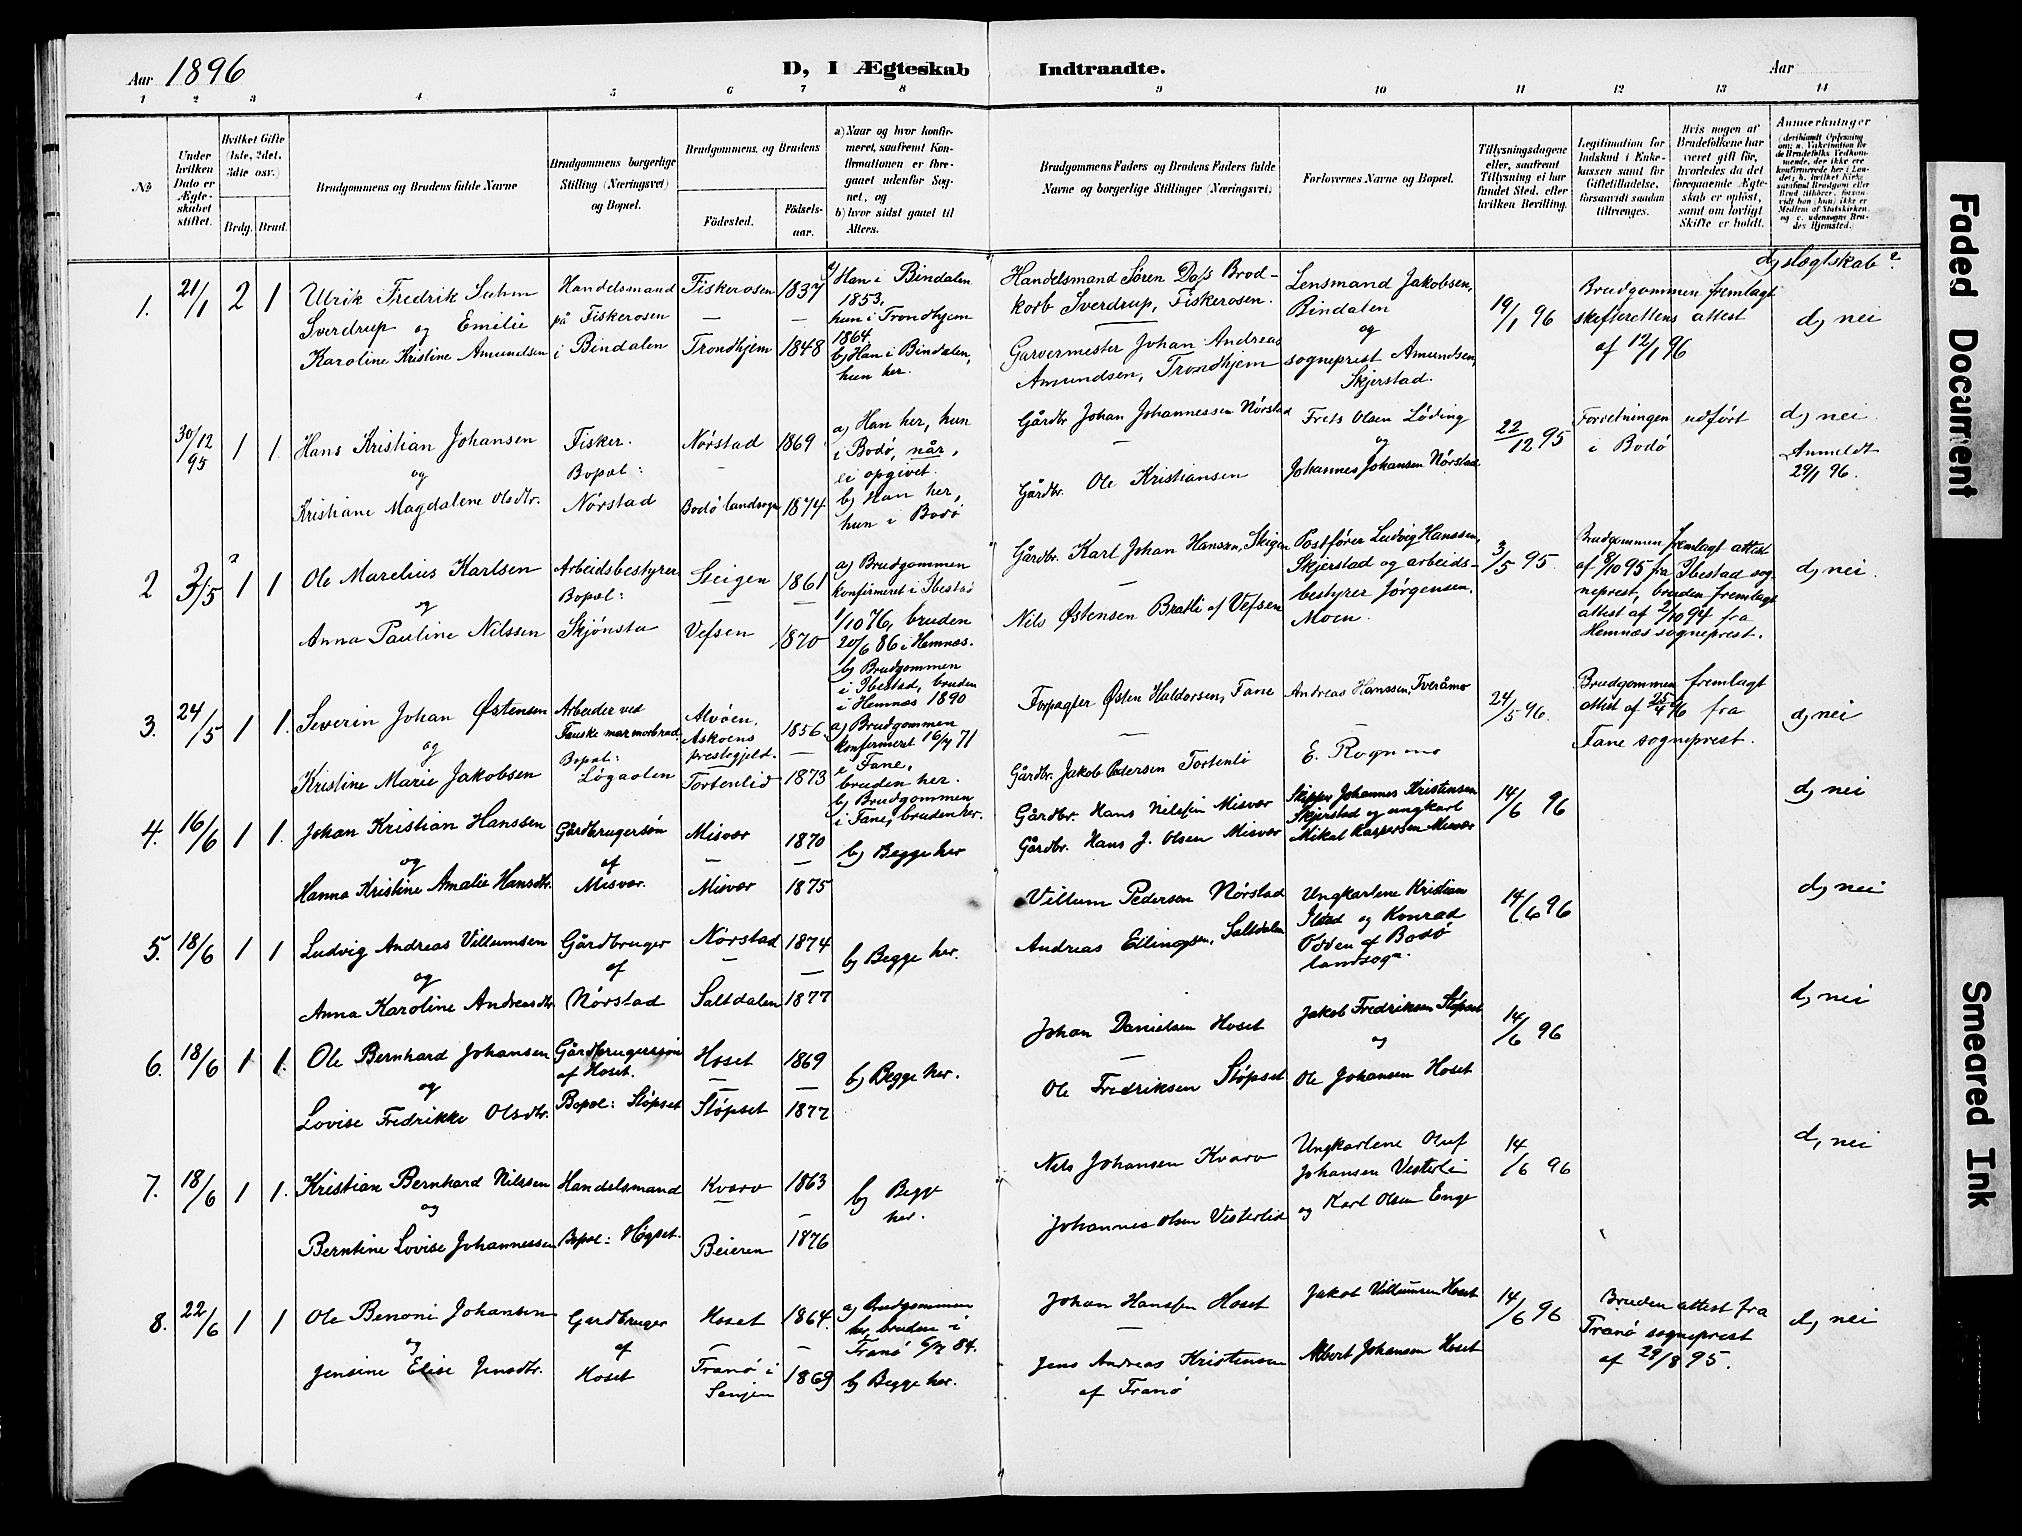 Aar 1896
D, I Ægteskab Indtraadte.
Aar
1 2 3 4 5 6 7 8 9 10 11 12 13 14
No
Under hvilken Dato er Ægteskabet stiftet.
Hvilket Gifte (1ste, 2det, 3die osv.)
Brdg. Brud.
Brudgommens og Brudens fulde Navne
Brudgommens borgerlige Stilling (Næringsvei) og Bopæl.
Brudgommens og Brudens
Födested.
Födsels-aar.
a) Naar og hvor konfirmeret, saafremt Konfirmationen er foregaaet udenfor Sognet, og
b) hvor sidst gaaet til Alters.
Brudgommens Faders og Brudens Faders fulde Navne og borgerlige Stillinger (Næringsvei)
Forlovernes Navne og Bopæl.
Tillysningsdagene eller, saafremt Tillysning ei har fundet Sted, efter hvilken Bevilling.
Legitimation for Indskud i Enkekassen samt for Giftetilladelse, forsaavidt saadan tiltrænges.
Hvis nogen af Brudefolkene har været gift för, hvorledes da det foregaaende Ægteskab er oplöst, samt om lovligt Skifte er holdt.
Anmærkninger
d, slegtskab?
1. 21/1 2 1
Ulrik Fredrik Suhm
Sverdrup og Emilie
Karoline Kristine Amundsen
Handelsmand
på Fiskerosen
i Bindalen
Fiskerosen 1837
Trondhjem 1848
a) Han i Bindalen
1853,
hun i Trondhjem
1864.
b) Han i Bindalen,
hun her.
Handelsmand Søren Dass Brod-
korb Sverdrup, Fiskerosen.
Garvermester Johan Andreas
Amundsen, Trondhjem
Lensmand Jakobsen,
Bindalen
og
sogneprest Amundsen,
Skjerstad.
19/1 96
Brudgommen fremlagt
skifterettens attest
af 12/1 96
d, nei
30/12 95 1 1.
Hans Kristian Johansen
og
Kristiane Magdalene Olsdtr.
Fisker.
Bopæl:
Nørstad
Nørstad 1869
Bodø landsogn 1874
a) Han her, hun
i Bodø, når,
ei opgivet.
b) Han her,
hun i Bodø
Gårdbr. Johan Johannessen Nørstad
Gårdbr. Ole Kristiansen
Frets Olsen Løding
og
Johannes Johansen Nørstad
22/12 95
Forretningen udført
i Bodø
d, nei.
Anmeldt
29/1 96.
2 3/5 ? 1 1
Ole Marelius Karlsen
og
Anna Pauline Nilssen
Arbeidsbestyrer
Bopæl:
Skjønsta
Steigen 1861
Vefsen 1870
a) Brudgommen
konfirmeret i Ibestad
1/10 76, bruden
20/6 86 i Hemnæs.
b) Brudgommen
i Ibestad, bruden
i Hemnæs 1890
Gårdbr. Karl Johan Hansen, Skigen
Nils Østensen Bratli af Vefsen
Postfører Ludvig Hanssen,
Skjerstad og arbeids-
bestyrer Jørgensen,
Moen.
3/5 95.
Brudgommen fremlagt attest
af 8/10 95 fra Ibestad sog-
neprest, bruden fremlagt
attest af 2/10 94 fra
Hemnæs sogneprest.
d, nei.
3. 24/5 1 1.
Severin Johan Østensen
og
Kristine Marie Jakobsen
Arbeider ved
Fauske marmorbrud.
Bopæl:
Løgaolen
Alvøen,
Askøens
prestegjeld. 1856.
Tortenlid 1873
a) Brudgommen
konfirmeret 16/7 71
i Fane,
bruden her.
b) Brudgommen
i Fane, bruden her.
Forpagter Østen Haldorsen, Fane
Gårdbr. Jakob Pedersen Tortenli
Andreas Hanssen, Tveråmo
E. Rognmo
24/5 96.
Brudgommen fremlagt
attest af 25/4 96 fra
Fane sogneprest.
d, nei
4. 16/6 1 1.
Johan Kristian Hanssen
og
Hanna Kristine Amalie Hansdtr.
Gårdbrugersøn
af
Misvær.
Misvær 1870
Misvær 1875
b) Begge her
Gårdbr. Hans Nilssen Misvær
Gårdbr. Hans J. Olsen Misvær
Skipper Johannes Kristensen
Skjerstad og ungkarl
Mikal Kaspersen Misvær
14/6 96
d, nei
5. 18/6 1 1
Ludvig Andreas Villumsen
og
Anna Karoline Andreasdtr.
Gårdbruger
af
Nørstad
Nørstad 1874
Saltdalen 1877
b) Begge her.
Villum Pedersen Nørstad
Andreas Ellingsen, Saltdalen
Ungkarlene Kristian
og Konrad
af Bodø
landsogn.
14/6 96
d, nei
6. 18/6 1 1.
Ole Bernhard Johansen
og
Lovise Fredrikke Olsdtr.
Gårdbrugersøn
af Hoset.
Bopæl: Støpset
Hoset 1869
Støpset 1877
b) Begge her.
Johan Danielsen Hoset
Ole Fredriksen Støpset
Jakob Fredriksen Støpset
og
Ole Johansen Hoset
14/6 96
d, nei
7. 18/6 1 1.
Kristian Bernhard Nilssen
og
Berntine Lovise Johannessen
Handelsmand
Bopæl: Høgset.
Kvarv 1863
Beieren 1876
b) Begge
her.
Nils Johansen Kvarv
Johannes Olsen Vesterlid
Ungkarlene Oluf
Johansen Vesterli
og Karl Olsen Enge
14/6 96
d, nei
8. 22/6 1 1
Ole Benoni Johansen
og
Jensine Elise Jensdtr.
Gardbruger
af
Hoset
Hoset 1864.
Tranø i
Senjen 1869
a) Brudgommen
her, bruden i
Tranø 6/7 84.
b) Begge her.
Johan Hanssen Hoset
Jens Andreas Kristensen
af Tranø
Jakob Villumsen Hoset
Albert Johansen Hoset
14/6 96
Bruden attest fra
Tranø sogneprest
af 29/8 95.
d, nei
Faded Document
Smeared Ink